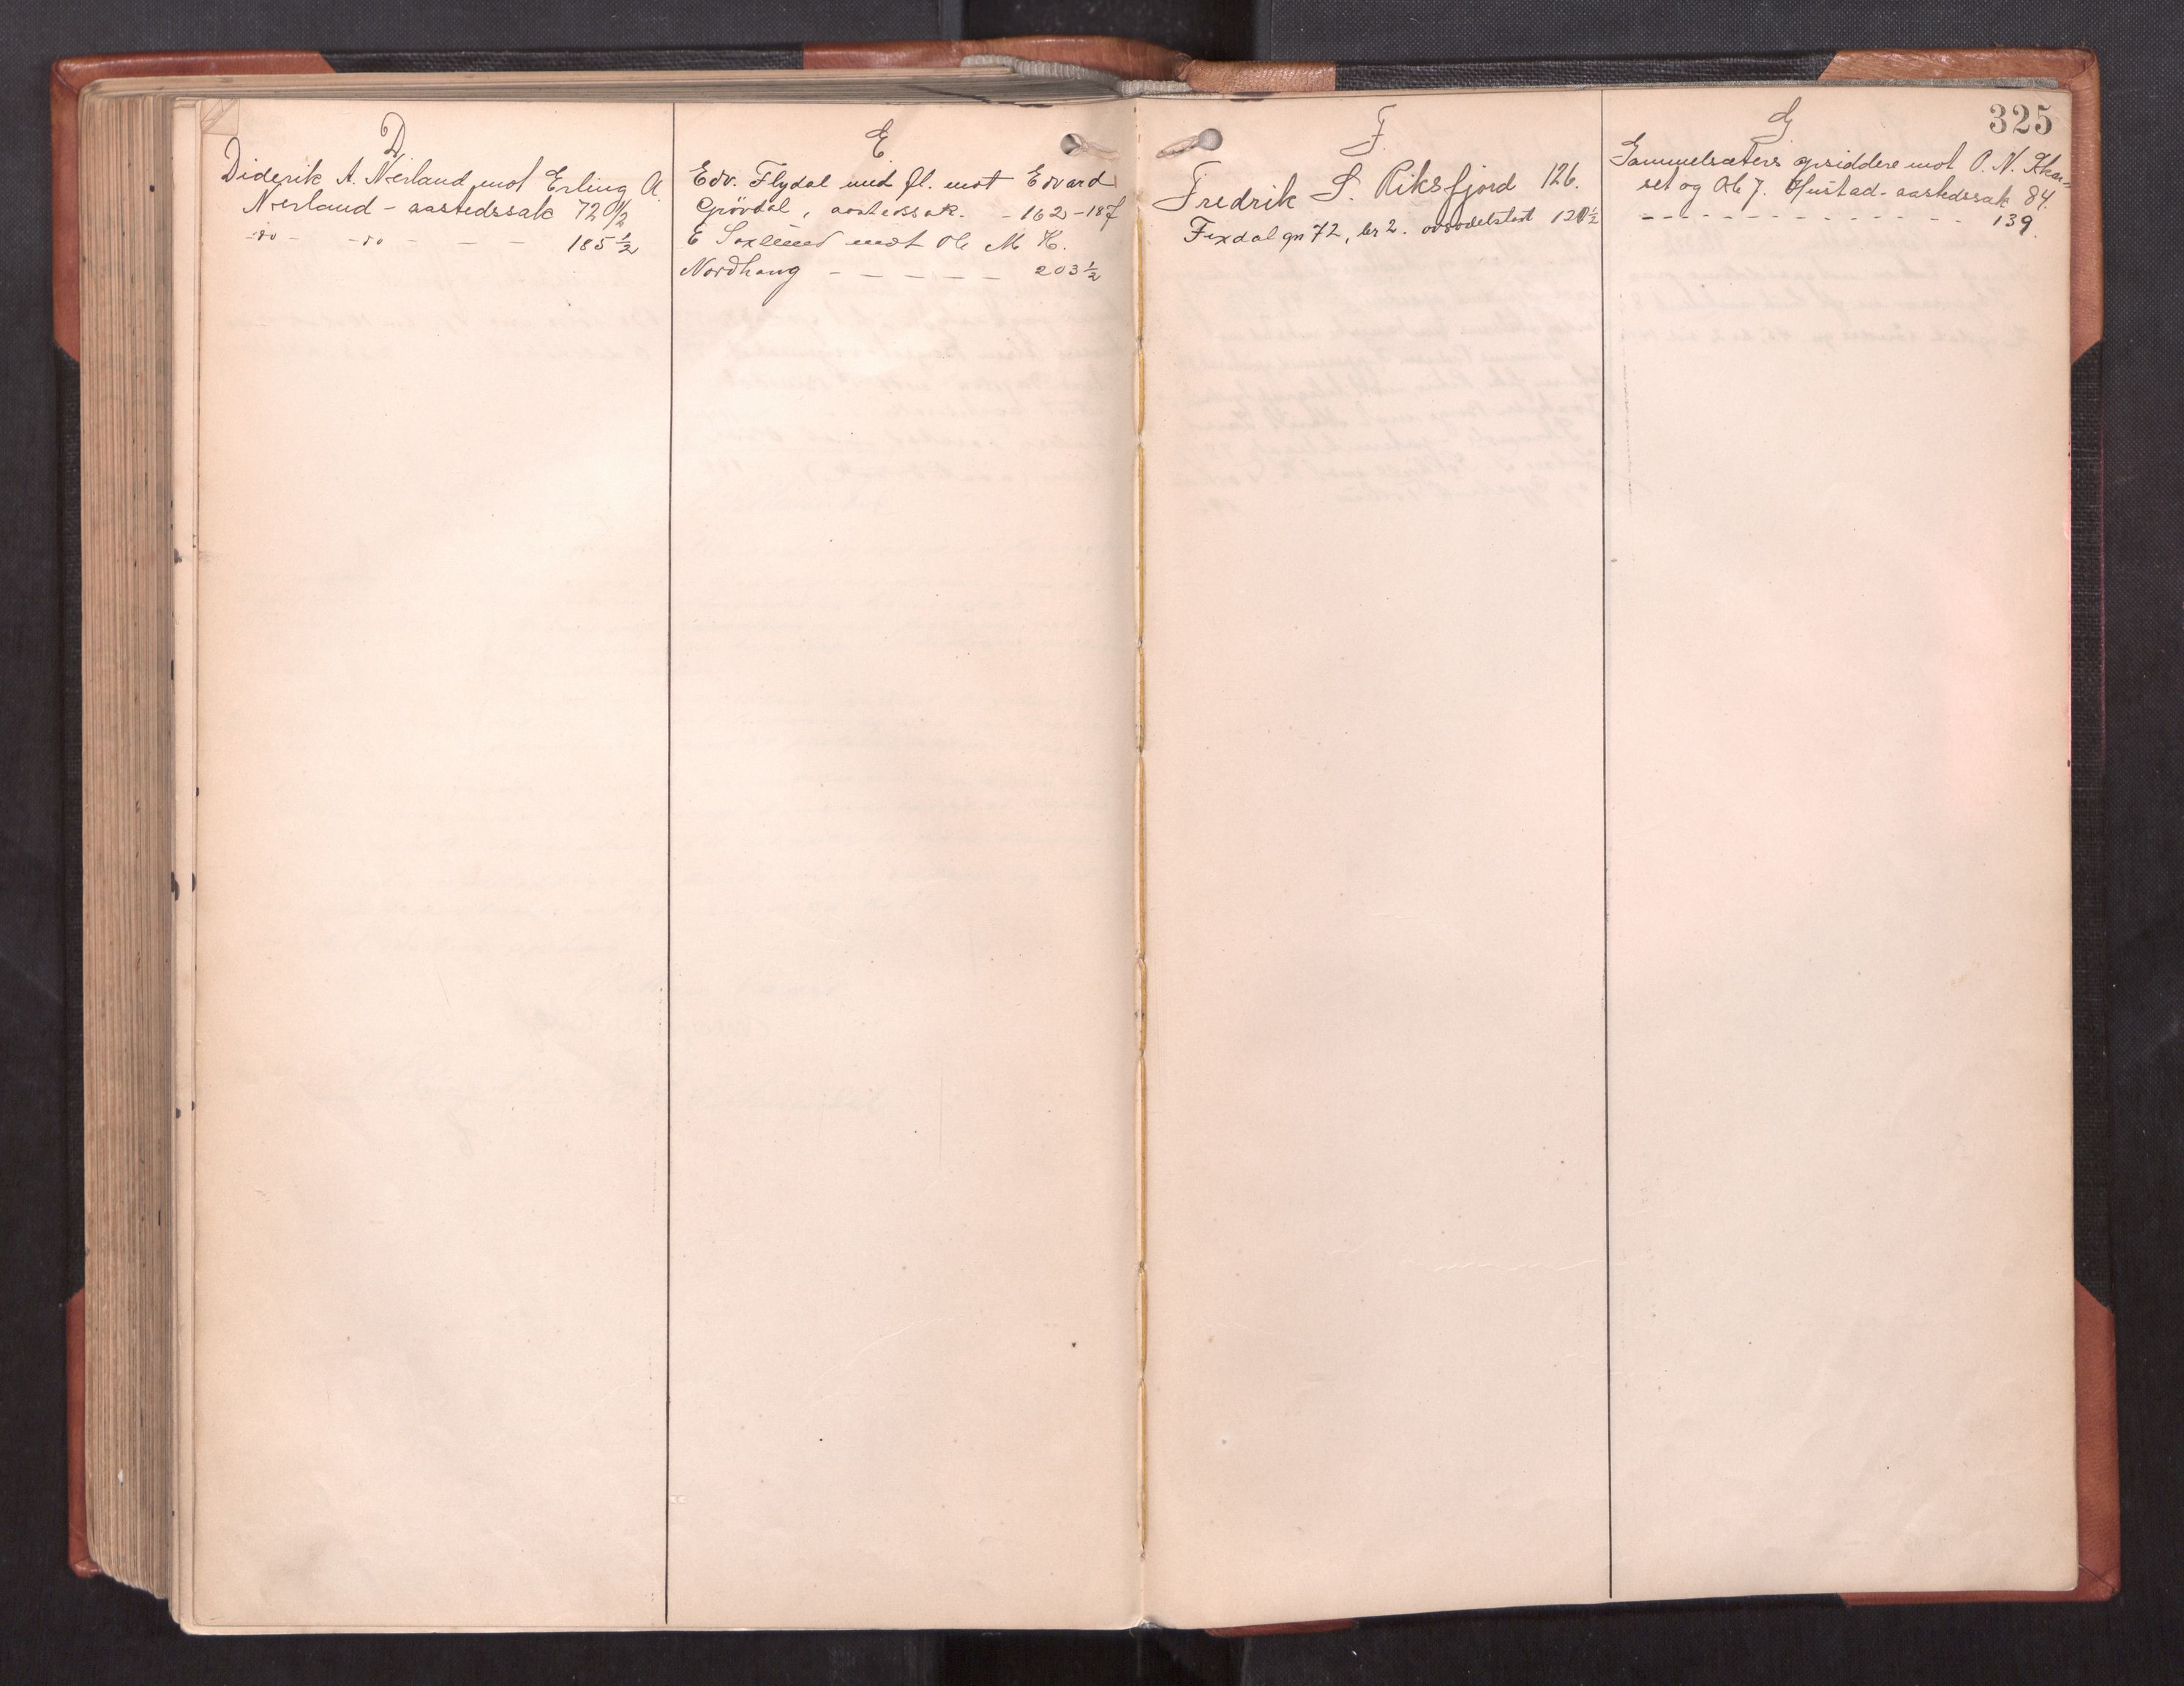 D
Diderik A. Nerland mot Erling A.
Nerland - aastedssak 72 1/2
-do- -do- - - - 185 1/2
E
Edv. Flydal med fl. mot Edvard
Grövdal, aastedssak. - 162-187
E mot Ole M K.
Nordhaug - - - - - - 203 1/2
F
Fredrik S. Riksfjord 126.
Fixdal gn 72, br 2. 120 1/2
G
325
Gammelsæters opsiddere mot O. N. Skar=
set og Ole J. Hustad - aastedssak 84.
- - - - - - - - - - - - - - 139.